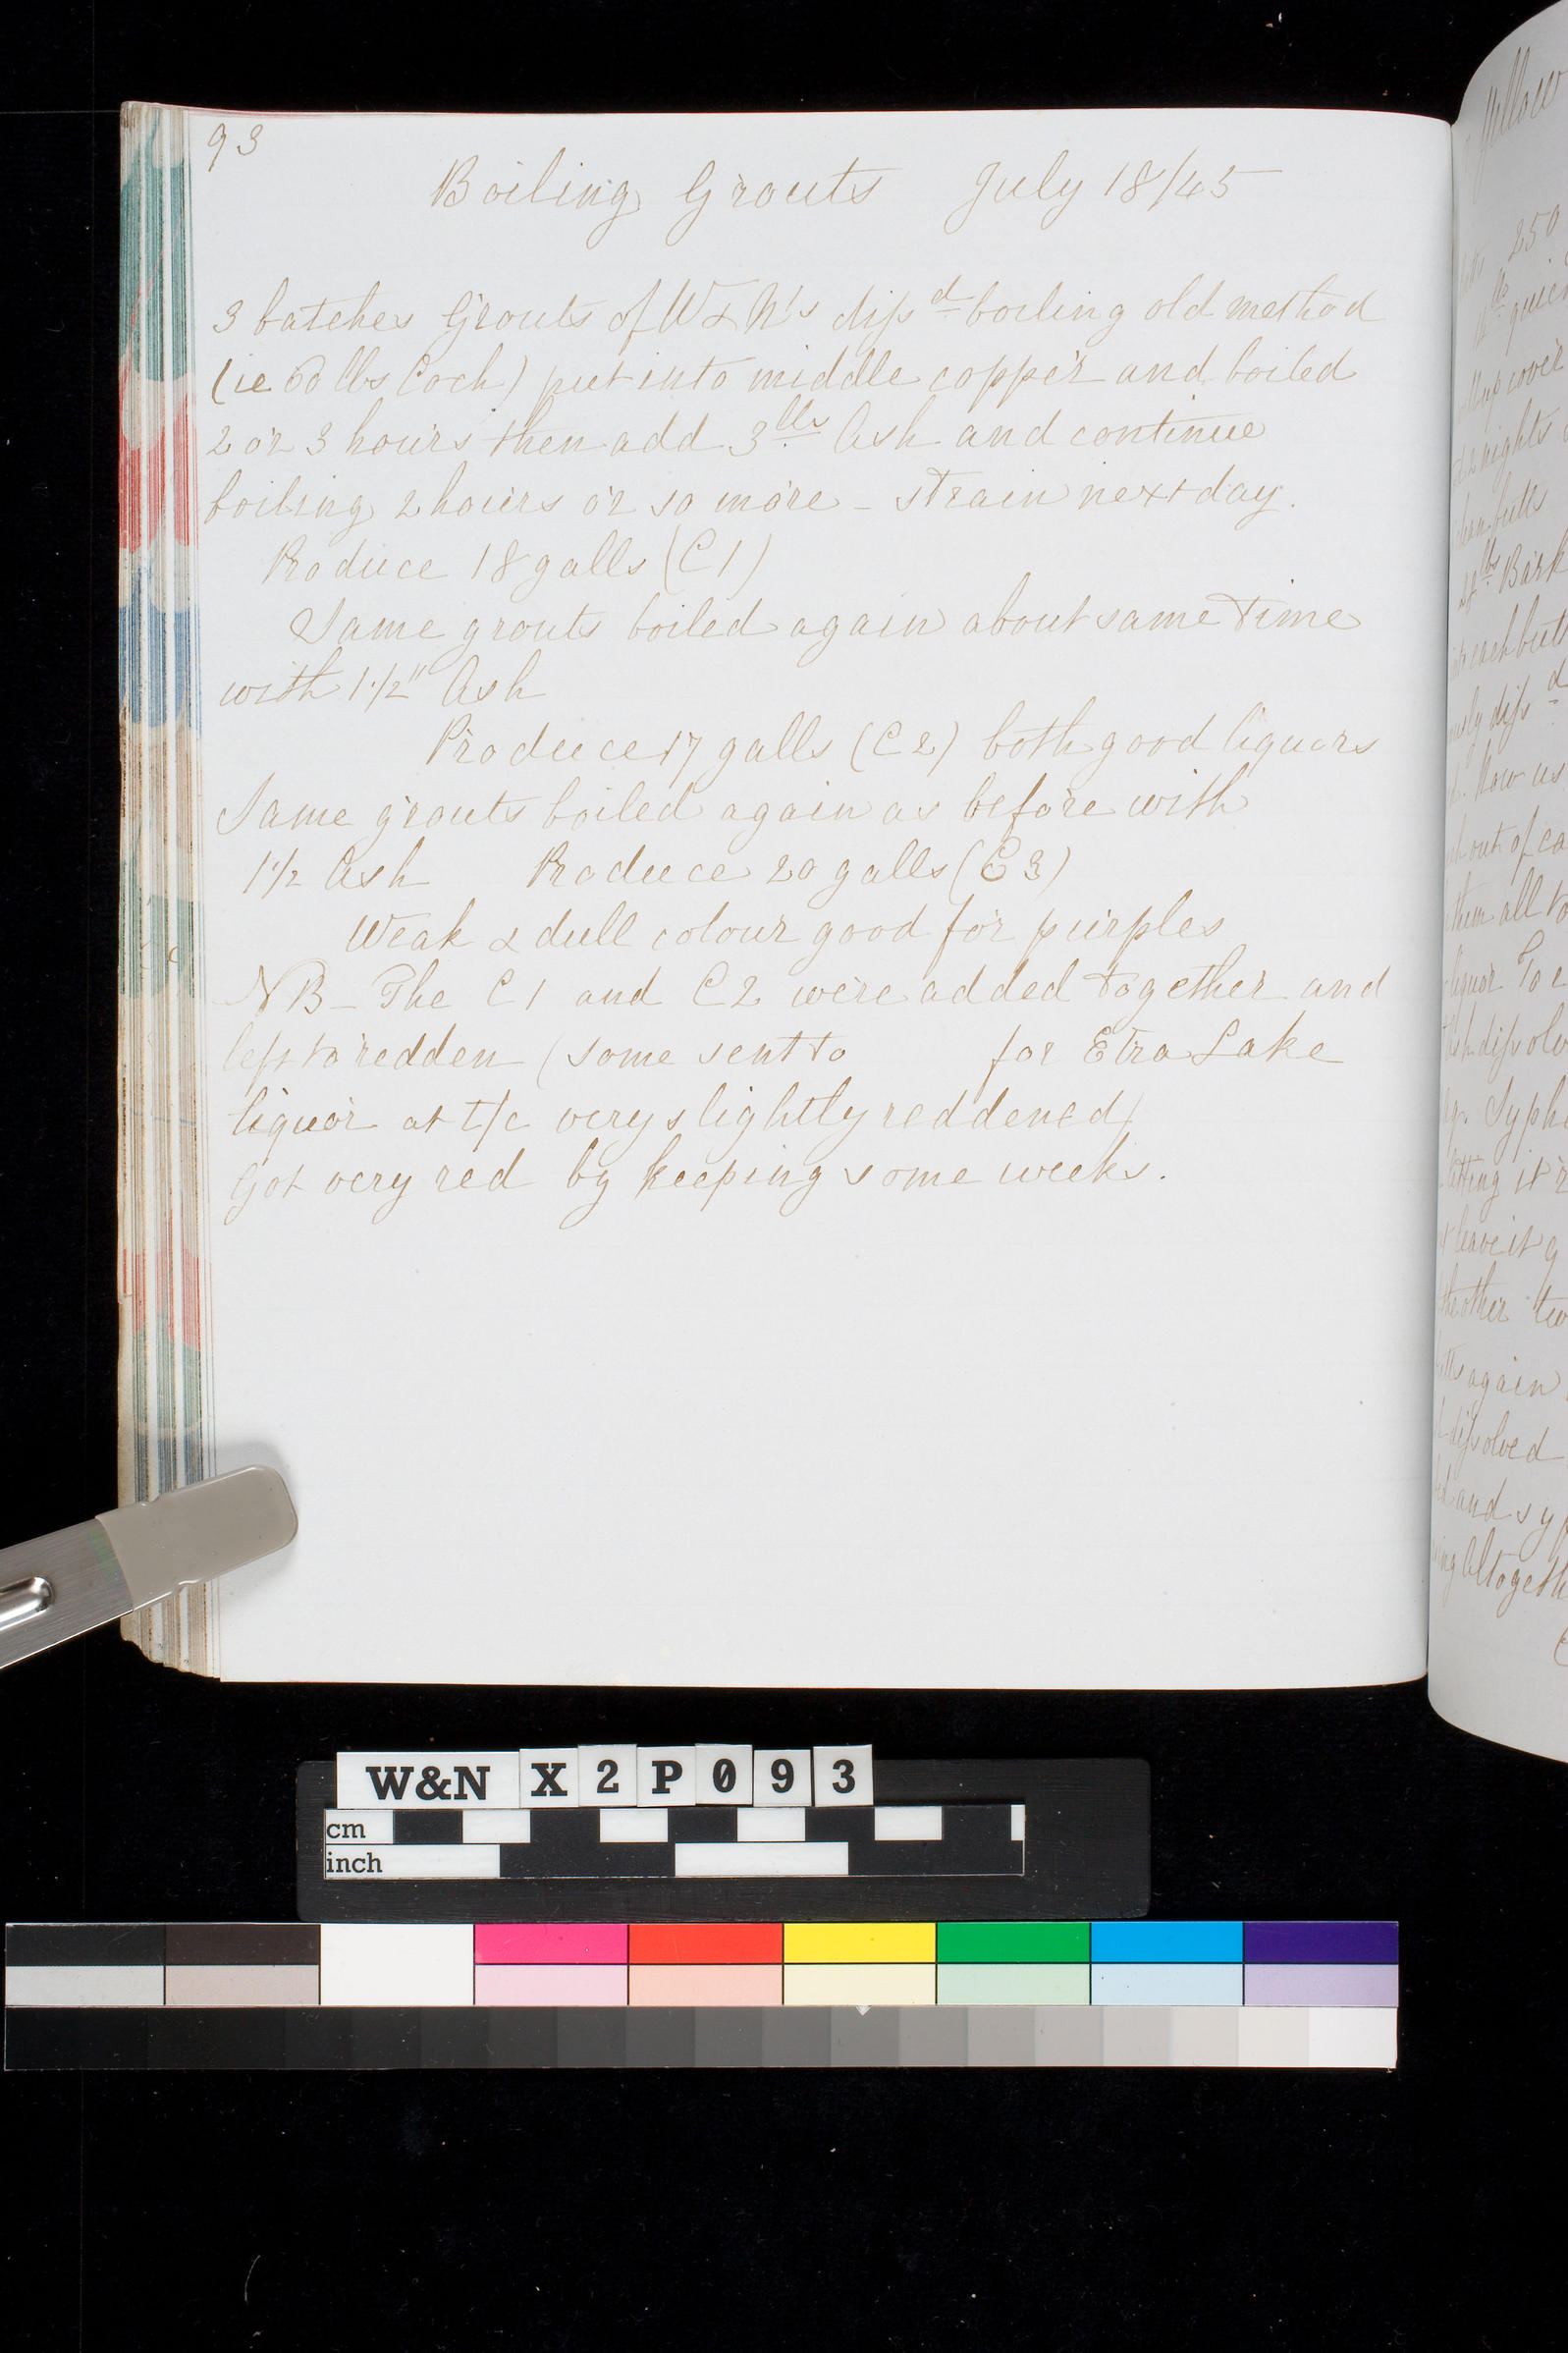 93
Boiling Grouts July 18/45
3 batches Grouts of W & N's dissd boiling old method
(ie 60 lbs Coch) put into middle copper and boiled
2 or 3 hours then add 3lbs Ash and continue
boiling 2 hours or so more - strain next day.
Produce 18 galls (C1)
Same grouts boiled again about same time
with 1 1/2" Ash
Produce 17 galls (C2) both good liquors
Same grouts boiled again as before with
1 1/2 Ash Produce 20 galls (C3)
Weak & dull colour good for purples
NB - The C1 and C2 were added together and
left to redden (some sent to for Etra Lake
liquor at t/c very slightly reddened)
Got very red by keeping some weeks.
Yellow
250
lbs
cover
2 nights
butts
28 lbs Bark
each butt
dissd
Now us
out of ca
them all to
liquor To
dissolv
Syph
letting it
leave it
the other tw
again
dissolved
and syp
altogeth
W&N X2P093
cm
inch